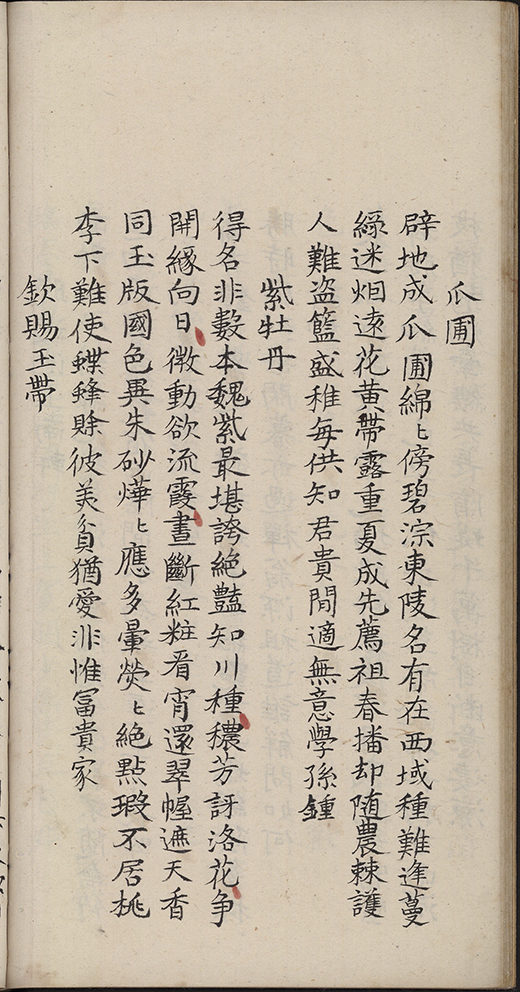 瓜圃
辟地成瓜圃綿〻傍碧淙東陵名有在西域種難逢蔓
綠迷烟遠花黃帶露重夏成先薦祖春播却随農棘護
人難盗籃盛稚每供知君貴閒適無意學孫鍾
紫牡丹
得名非數本魏紫最堪誇絕豔知川種穠芳訝洛花争
開緣向日微動欲流霞晝斷紅粧看宵還翠幄遮天香
同玉版國色異朱砂燁〻應多暈熒〻絕點瑕不居桃
李下難使蝶蜂賒彼美貧猶愛非惟冨貴家
欽賜玉帶